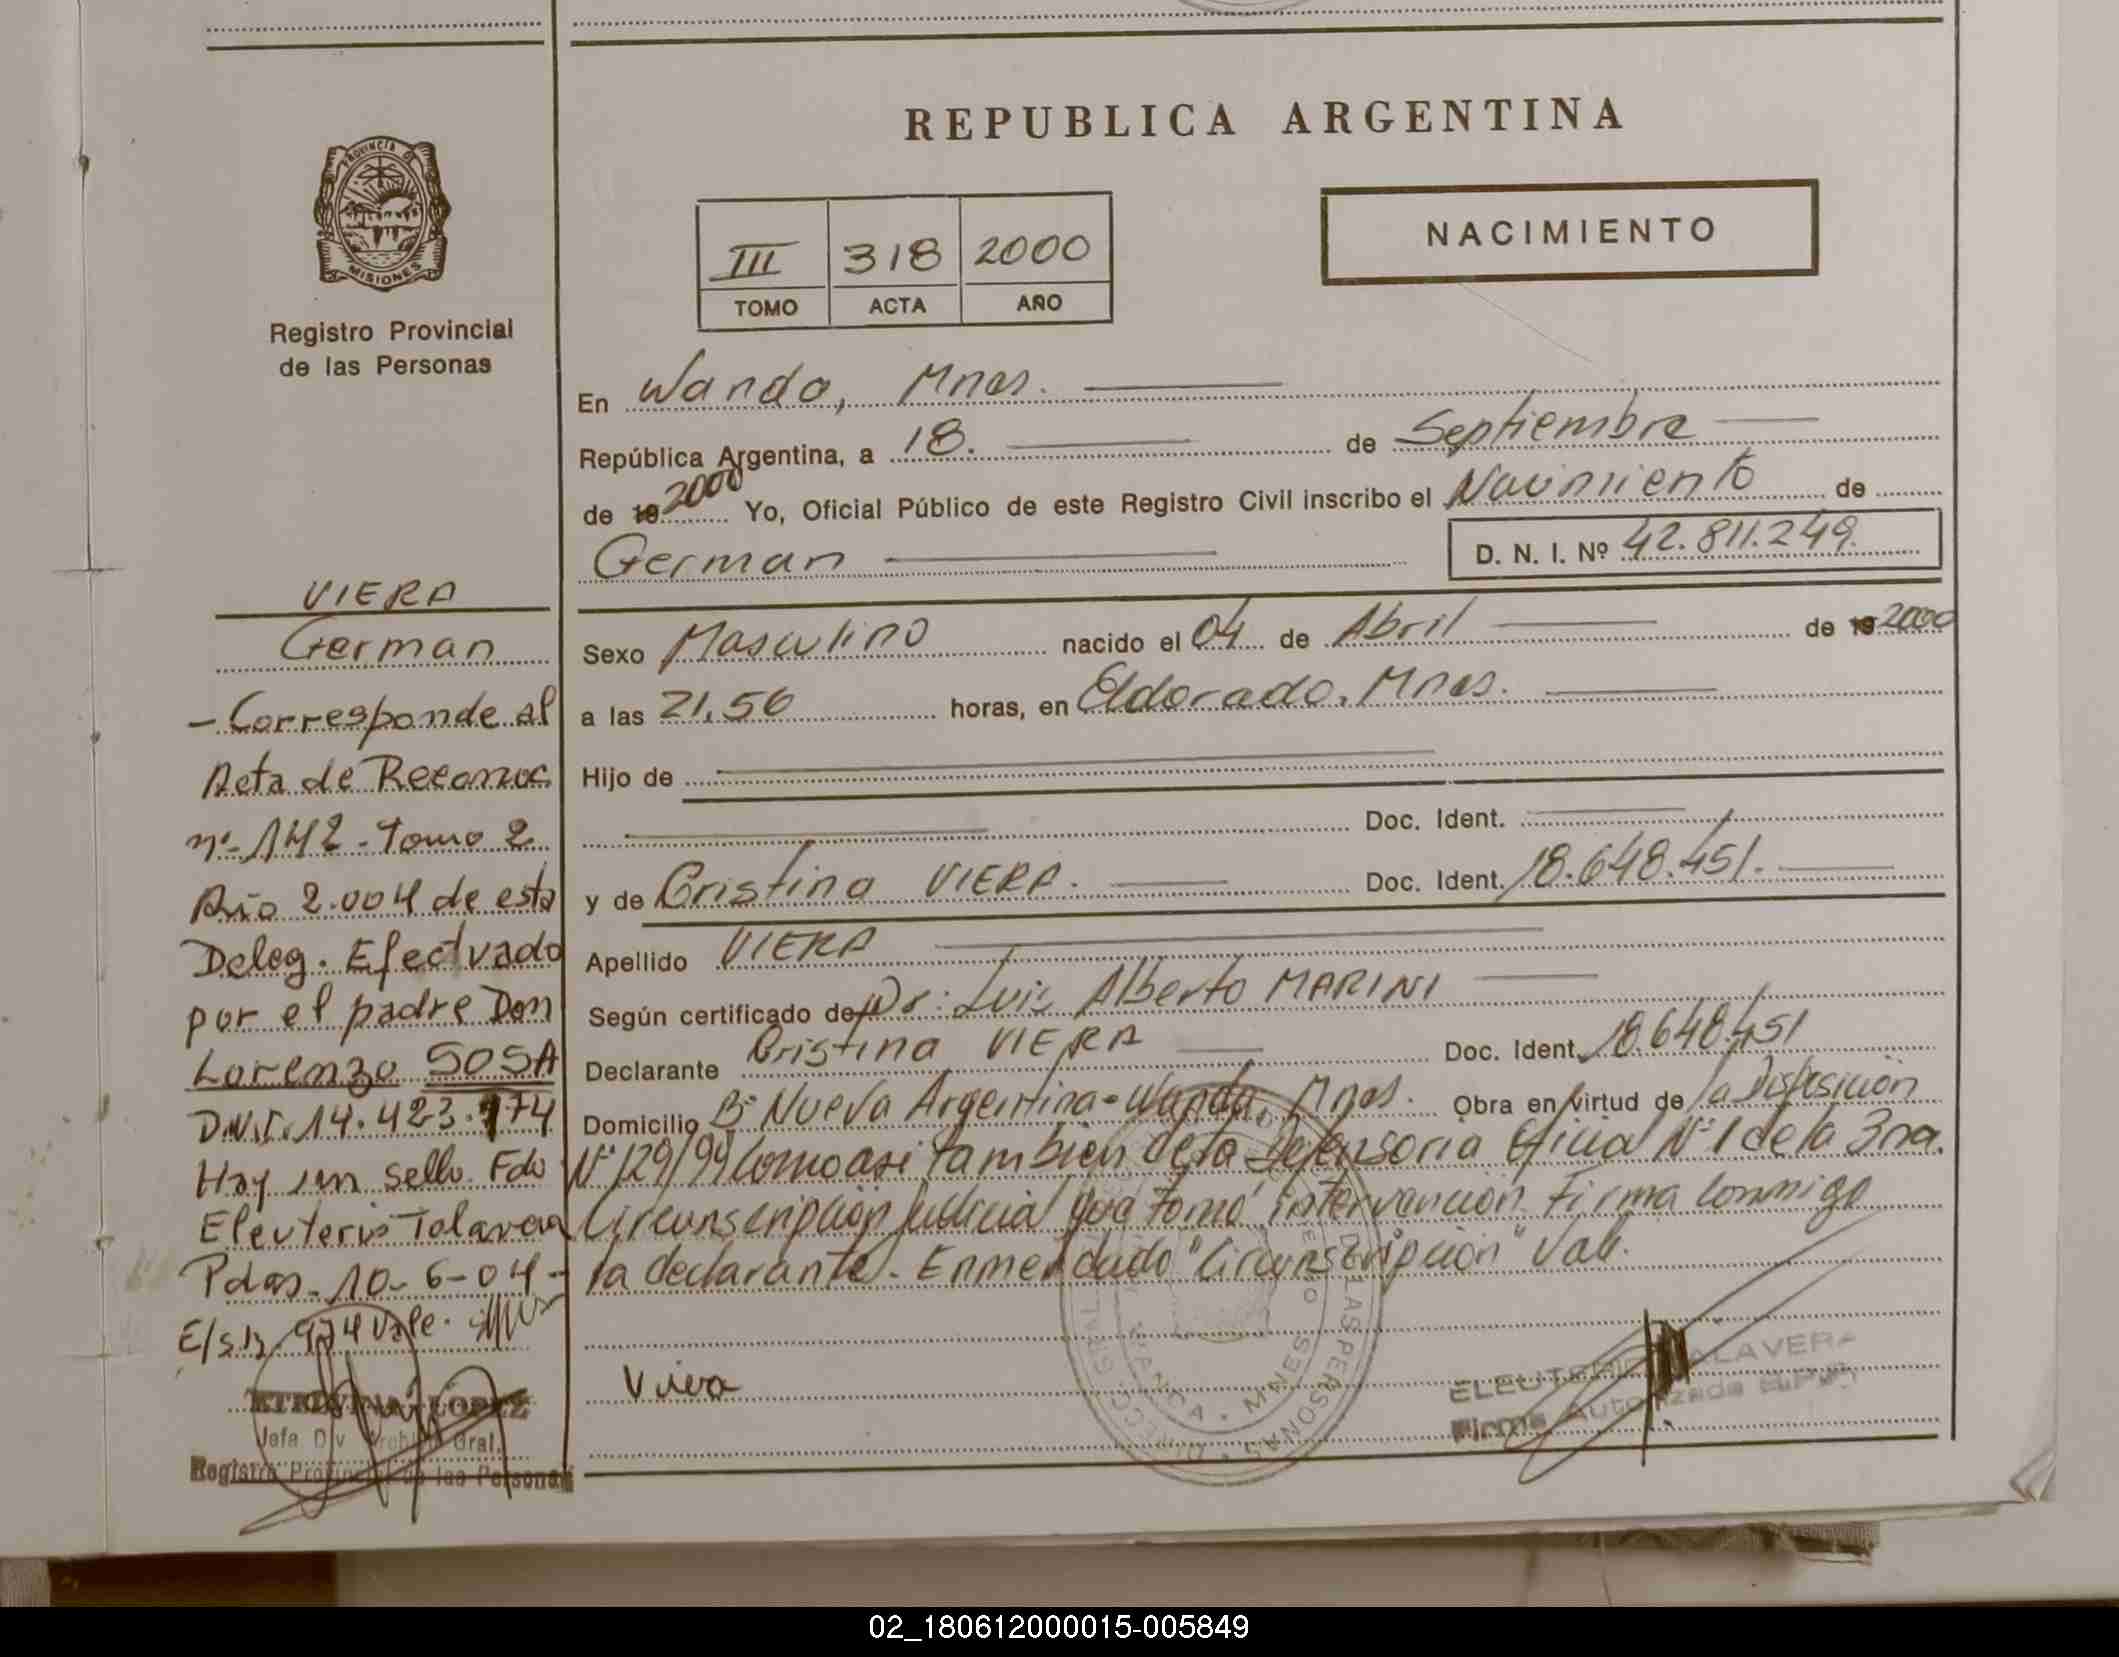 REPUBLICA ARGENTINA
PROVINCIA DE
MISIONES
Registro Provincial
de las Personas
NACIMIENTO
III 318 2000
TOMO ACTA AÑO
En Wanda, Mnes.
República Argentina, a 18. de Septiembre
de 19 2000 Yo, Oficial Público de este Registro Civil inscribo el Nacimiento de
German D. N. I. Nº 42.811.249
Sexo Masculino nacido el 04 de Abril de 19 2000
a las 21,56 horas, en Eldorado, Mnes.
Hijo de
Doc. Ident.
y de Cristina VIERA. Doc. Ident. 18.648.451.
Apellido VIERA
Según certificado de Dr: Luis Alberto MARINI
Declarante Cristina VIERA Doc. Ident. 18.648.451
Domicilio Bº Nueva Argentina - Wanda, Mnes. Obra en virtud de la Disposición
Nº 129/99 como asi tambien de la Defensoria Oficial Nº 1 de la 3ra.
Circunscripción Judicial que tomó intervención. Firma conmigo
la declarante. Enmendado "Circunscripción" Vale.
Viera
ELEUTERIO TALAVERA
Firma Autorizada
DE LAS PERSONAS
MNES
VIERA
German
- Corresponde al
Acta de Reconoc
nº 142 - Tomo 2
Año 2.004 de esta
Deleg. Efectuado
por el padre Don
Lorenzo SOSA
D.N.I. 14.423.974
Hay un sello. Fdo
Eleuterio Talavera
Pdas. 10-6-04 -
E/s.b. 974 Vale.
ETELVINA LOPEZ
Jefa Div Archivo Gral.
Registro Provincial de las Personas
02_180612000015-005849